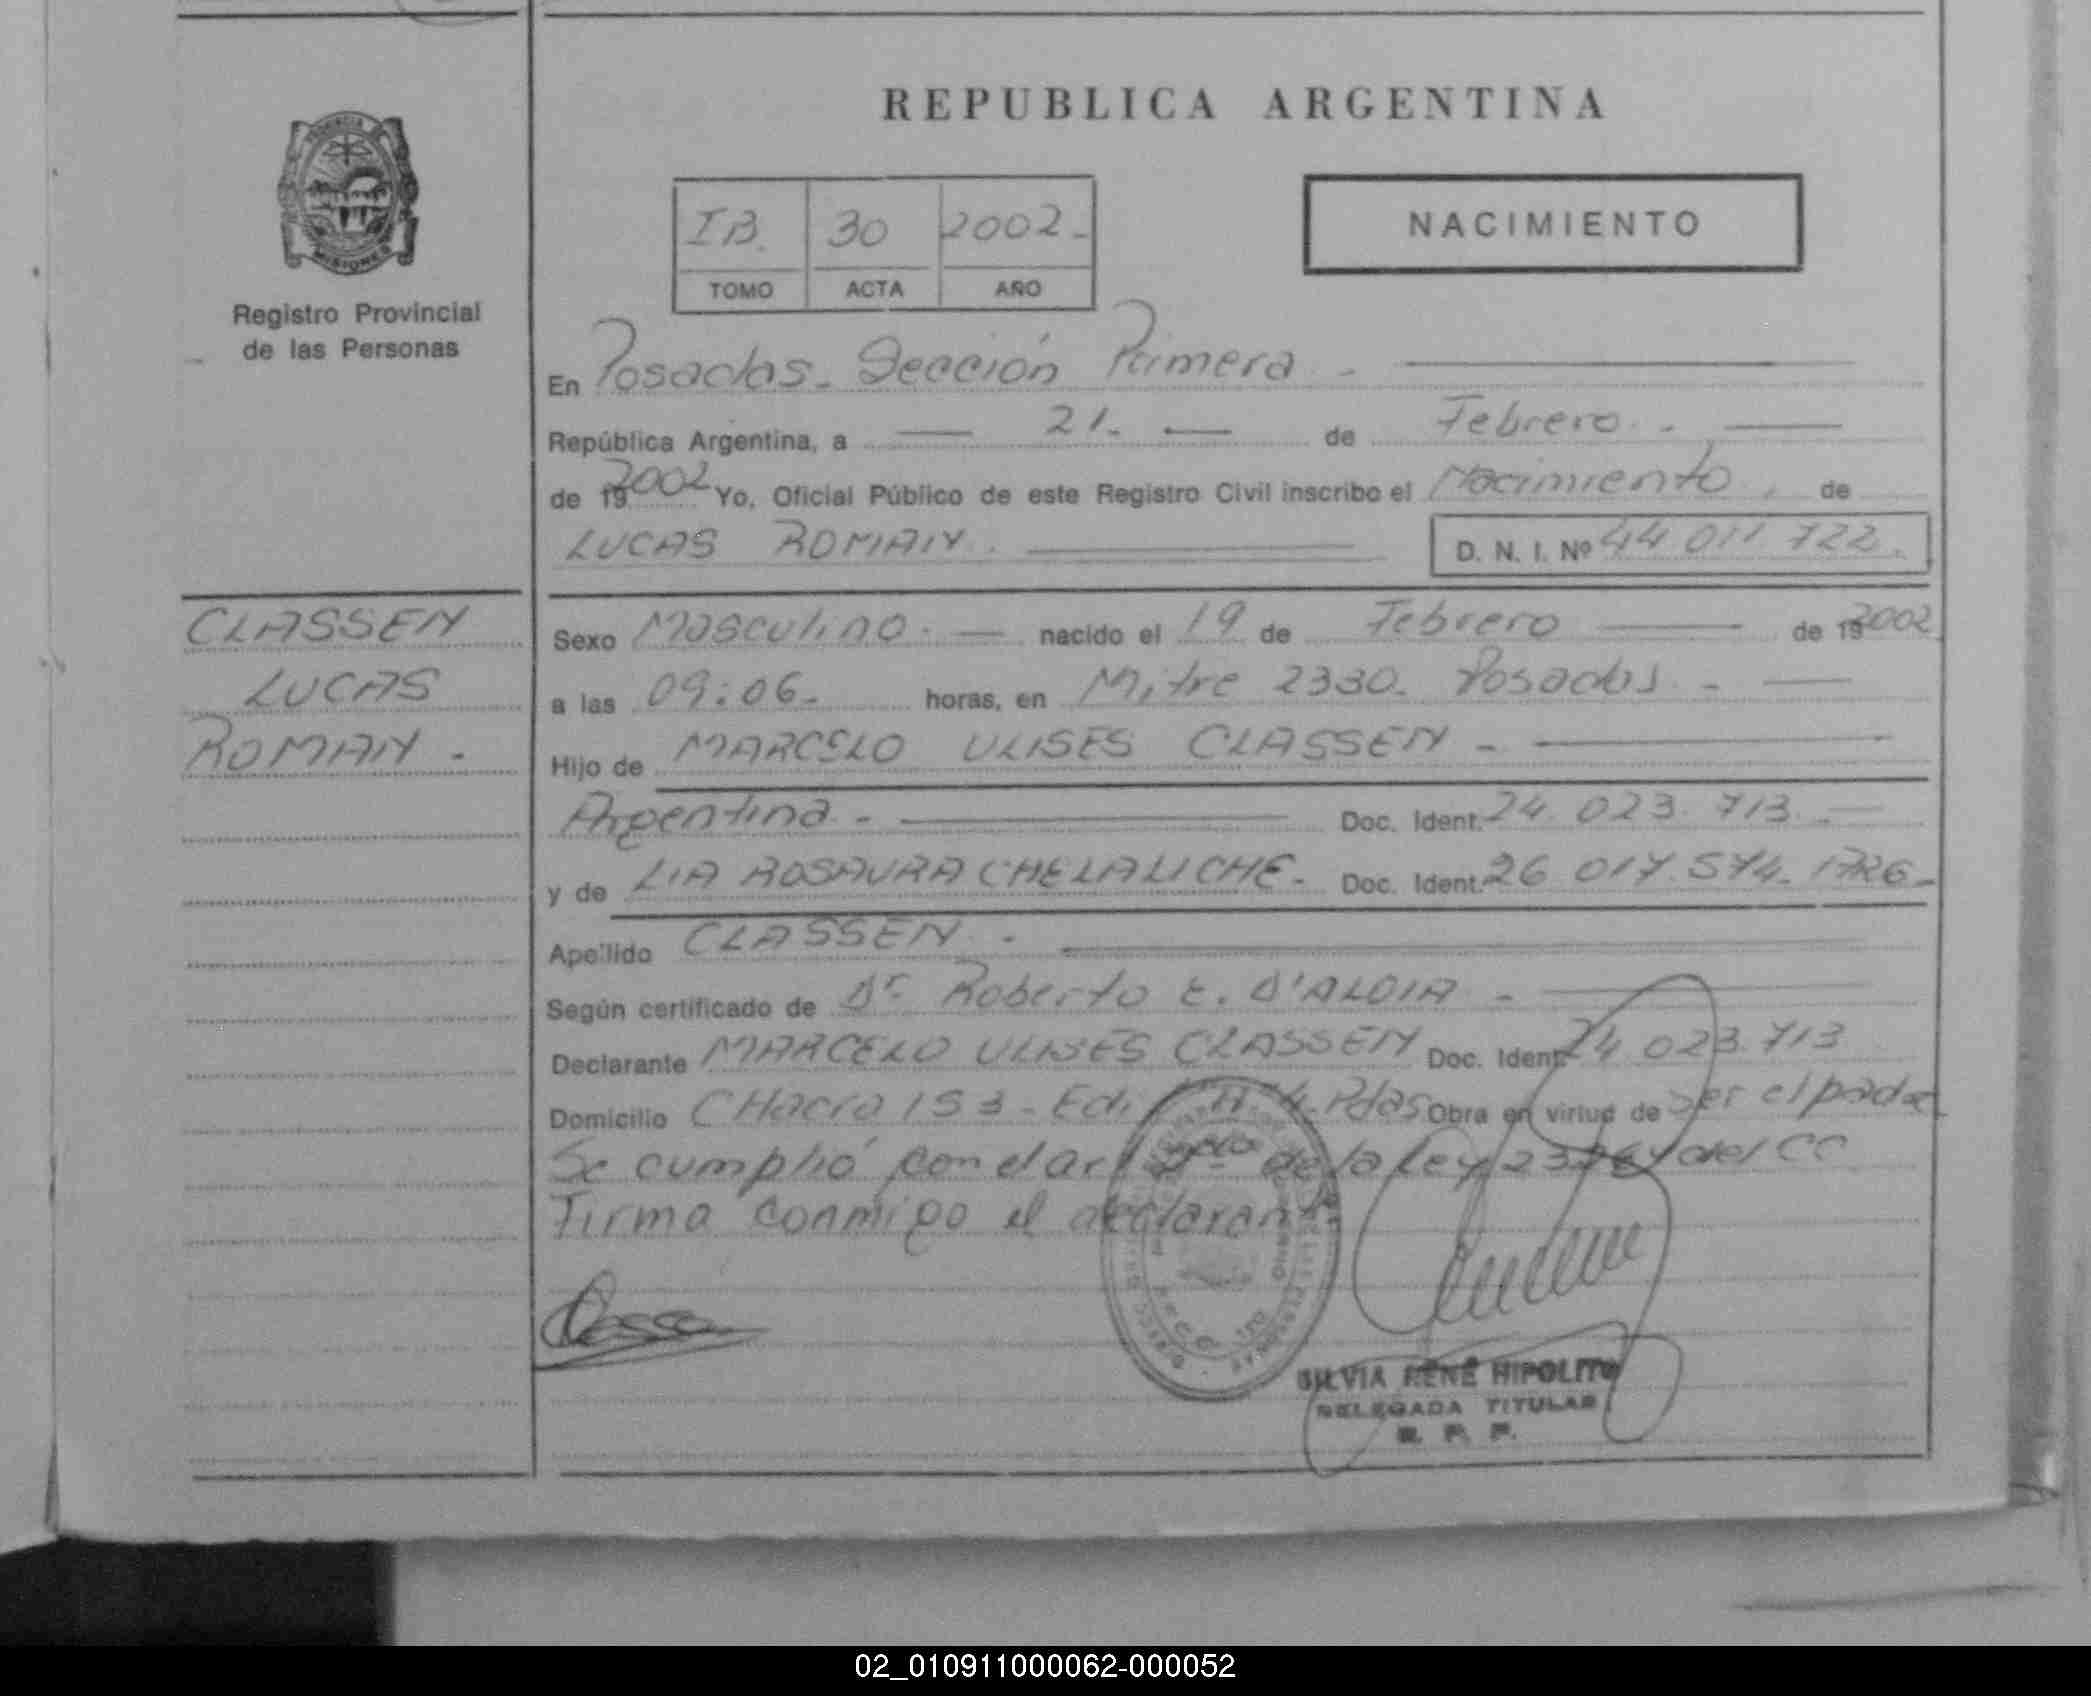 REPUBLICA ARGENTINA
PROVINCIA DE
MISIONES
Registro Provincial
de las Personas
IB. 30 2002.-
TOMO ACTA AÑO
NACIMIENTO
En Posadas. Sección Primera -
República Argentina, a 21. de Febrero. -
de 19 2002 Yo, Oficial Público de este Registro Civil inscribo el Nacimiento, de
LUCAS ROMAN. D. N. I. Nº 44 011 722.
CLASSEN
LUCAS
ROMAN -
Sexo Masculino. nacido el 19 de Febrero de 19 2002
a las 09:06.- horas, en Mitre 2330. Posadas. -
Hijo de MARCELO ULISES CLASSEN -
Argentina. - Doc. Ident. 24. 023. 713. -
y de LIA ROSAURA CHELALICHE. Doc. Ident. 26 017. 574. ARG-
Apellido CLASSEN. -
Según certificado de Dr. Roberto E. D'ALOIA -
Declarante MARCELO ULISES CLASSEN Doc. Ident. 24 023. 713
Domicilio CHacra 153 - Pdas Obra en virtud de ser el padre
Se cumplió con el art de la Ley del CC
Firma conmigo el declarante
SILVIA RENÉ HIPOLITO
DELEGADA TITULAR
R. P. P.
02_010911000062-000052